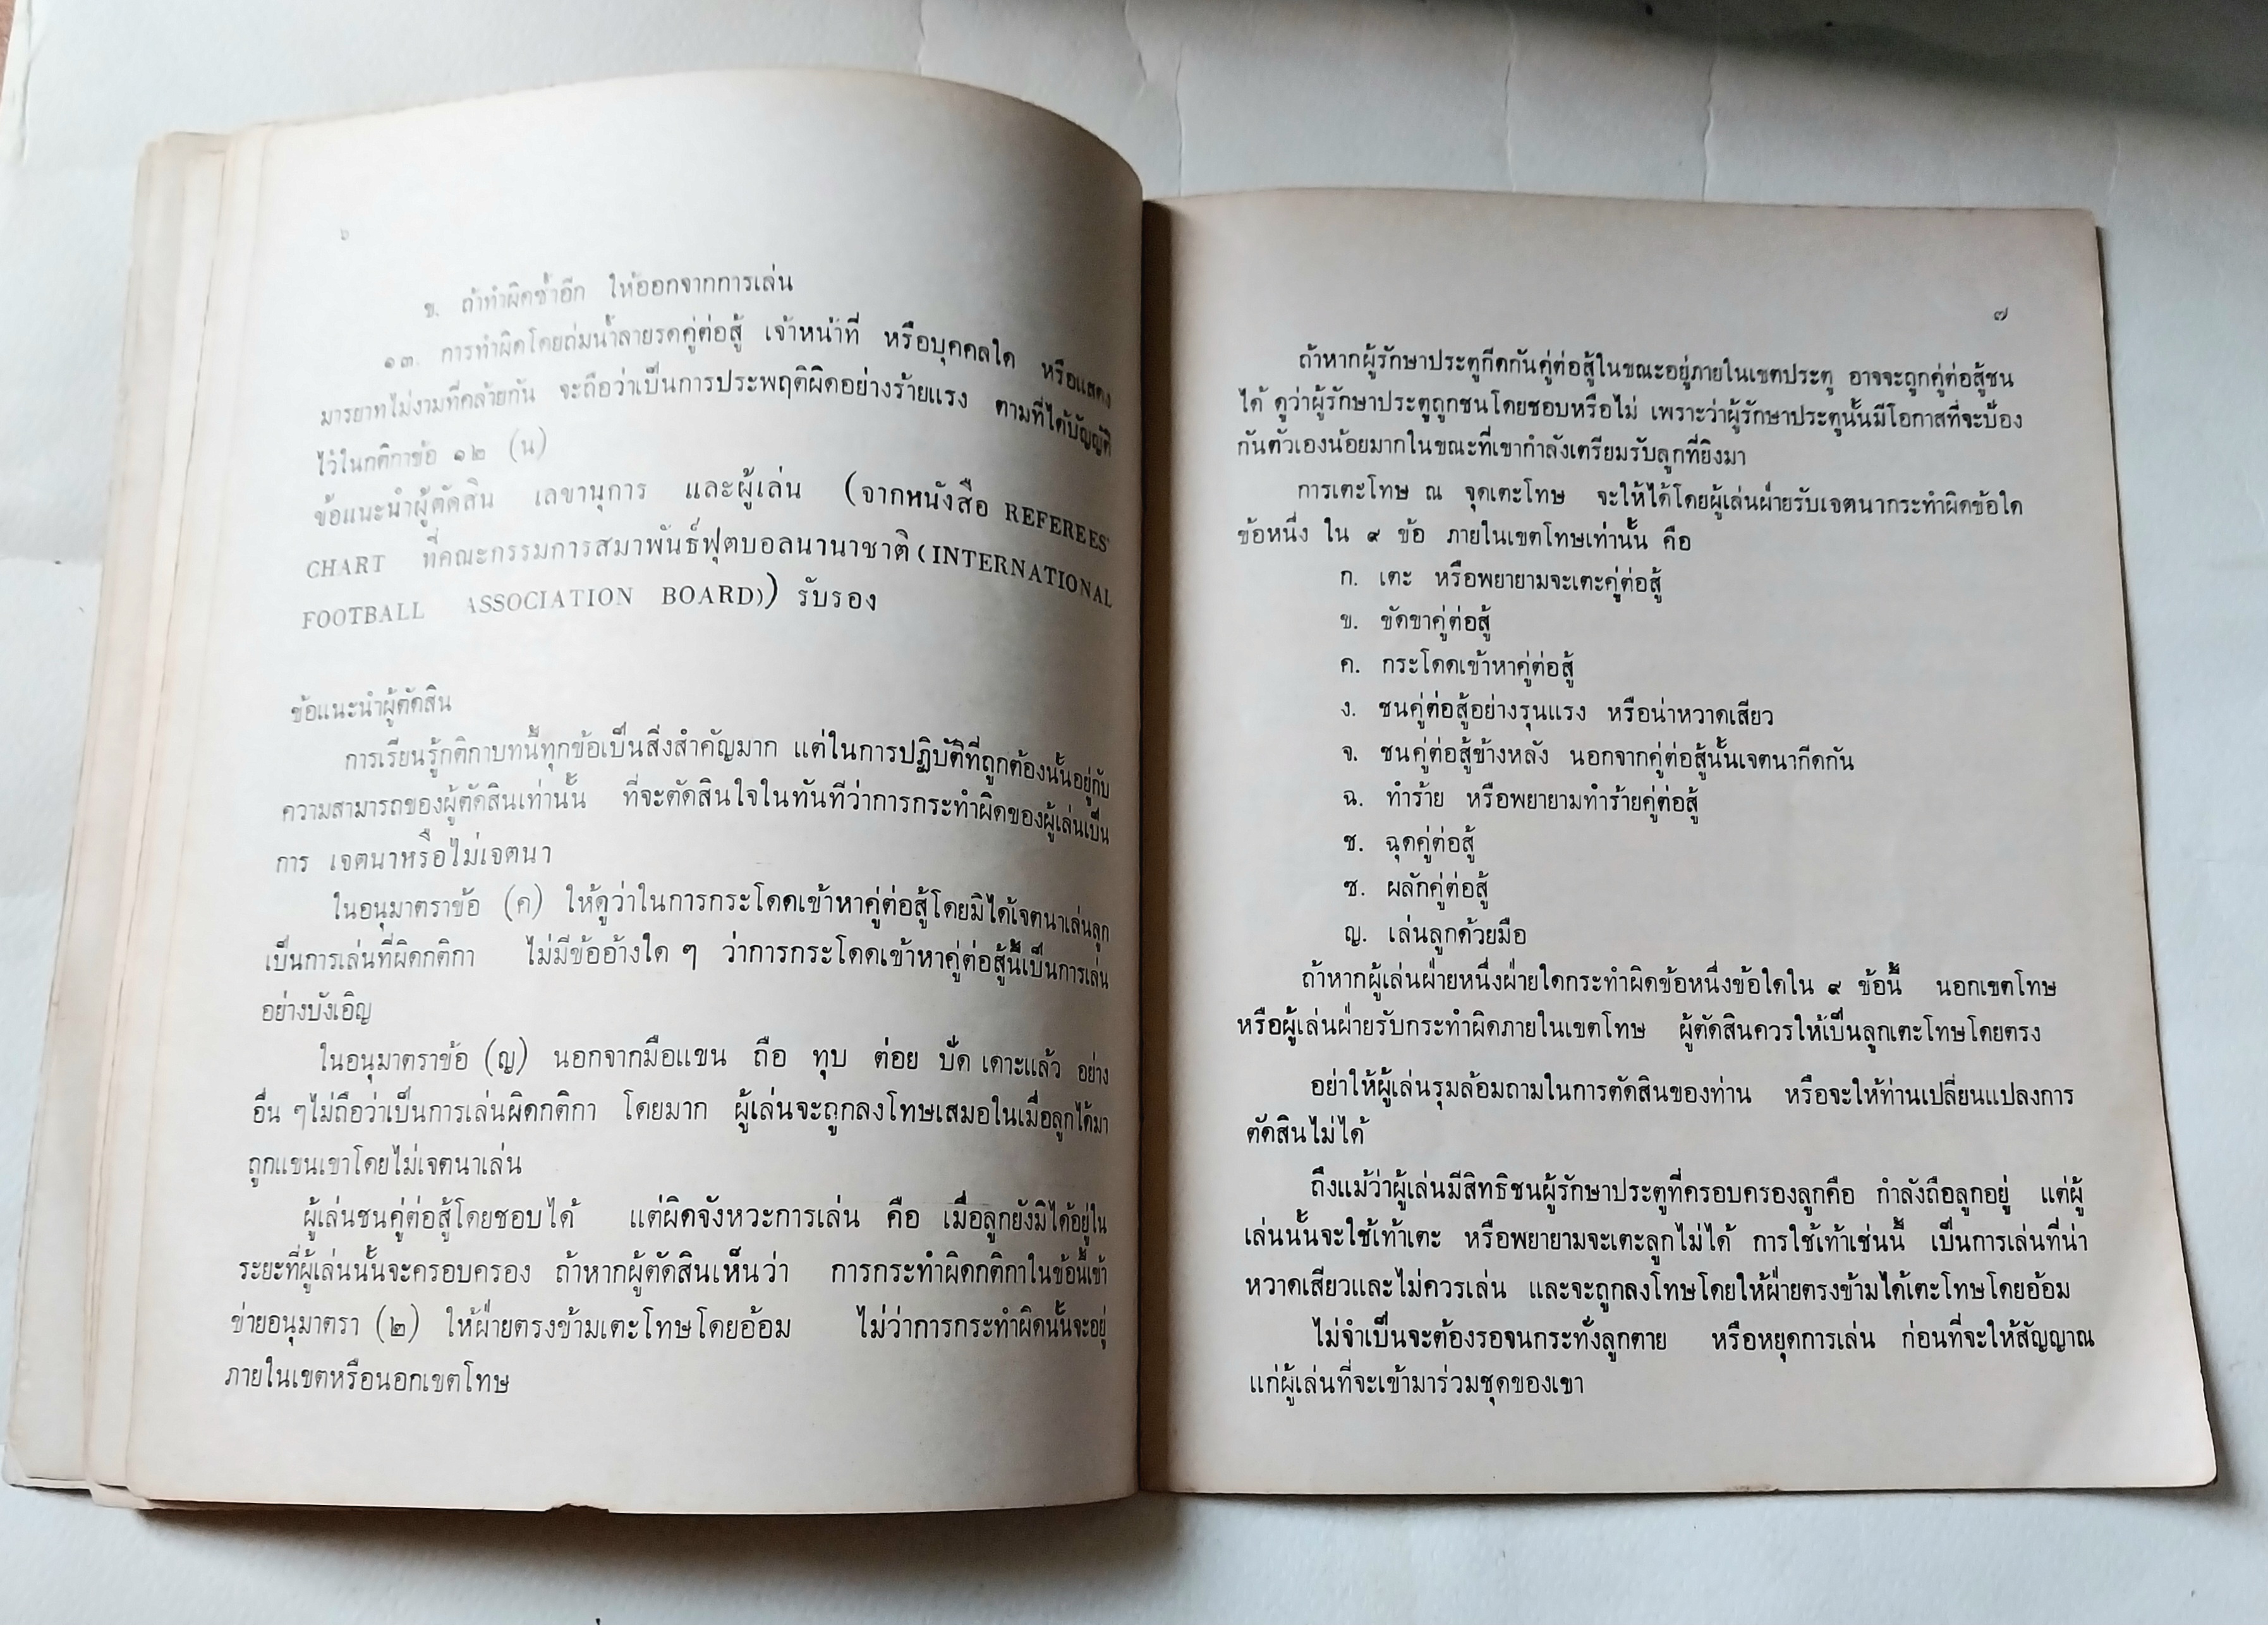 ๖
ข. ถ้าทำผิดซ้ำอีก ให้ออกจากการเล่น
๑๓. การทำผิดโดยถ่มน้ำลายรดคู่ต่อสู้ เจ้าหน้าที่ หรือบุคคลใด หรือแสดง
มารยาทไม่งามที่คล้ายกัน จะถือว่าเป็นการประพฤติผิดอย่างร้ายแรง ตามที่ได้บัญญัติ
ไว้ในกติกาข้อ ๑๒ (น)
ข้อแนะนำผู้ตัดสิน เลขานุการ และผู้เล่น (จากหนังสือ REFEREES'
CHART ที่คณะกรรมการสมาพันธ์ฟุตบอลนานาชาติ (INTERNATIONAL
FOOTBALL ASSOCIATION BOARD)) รับรอง
ข้อแนะนำผู้ตัดสิน
การเรียนรู้กติกาบทนี้ทุกข้อเป็นสิ่งสำคัญมาก แต่ในการปฏิบัติที่ถูกต้องนั้นอยู่กับ
ความสามารถของผู้ตัดสินเท่านั้น ที่จะตัดสินใจในทันทีว่าการกระทำผิดของผู้เล่นเป็น
การ เจตนาหรือไม่เจตนา
ในอนุมาตราข้อ (ค) ให้ดูว่าในการกระโดดเข้าหาคู่ต่อสู้โดยมิได้เจตนาเล่นลูก
เป็นการเล่นที่ผิดกติกา ไม่มีข้ออ้างใด ๆ ว่าการกระโดดเข้าหาคู่ต่อสู้นี้เป็นการเล่น
อย่างบังเอิญ
ในอนุมาตราข้อ (ญ) นอกจากมือแขน ถือ ทุบ ต่อย ปัด เดาะแล้ว อย่าง
อื่น ๆไม่ถือว่าเป็นการเล่นผิดกติกา โดยมาก ผู้เล่นจะถูกลงโทษเสมอในเมื่อลูกได้มา
ถูกแขนเขาโดยไม่เจตนาเล่น
ผู้เล่นชนคู่ต่อสู้โดยชอบได้ แต่ผิดจังหวะการเล่น คือ เมื่อลูกยังมิได้อยู่ใน
ระยะที่ผู้เล่นนั้นจะครอบครอง ถ้าหากผู้ตัดสินเห็นว่า การกระทำผิดกติกาในข้อนี้เข้า
ข่ายอนุมาตรา (๒) ให้ฝ่ายตรงข้ามเตะโทษโดยอ้อม ไม่ว่าการกระทำผิดนั้นจะอยู่
ภายในเขตหรือนอกเขตโทษ
๗
ถ้าหากผู้รักษาประตูกีดกันคู่ต่อสู้ในขณะอยู่ภายในเขตประตู อาจจะถูกคู่ต่อสู้ชน
ได้ ดูว่าผู้รักษาประตูถูกชนโดยชอบหรือไม่ เพราะว่าผู้รักษาประตูนั้นมีโอกาสที่จะป้อง
กันตัวเองน้อยมากในขณะที่เขากำลังเตรียมรับลูกที่ยิงมา
การเตะโทษ ณ จุดเตะโทษ จะให้ได้โดยผู้เล่นฝ่ายรับเจตนากระทำผิดข้อใด
ข้อหนึ่ง ใน ๙ ข้อ ภายในเขตโทษเท่านั้น คือ
ก. เตะ หรือพยายามจะเตะคู่ต่อสู้
ข. ขัดขาคู่ต่อสู้
ค. กระโดดเข้าหาคู่ต่อสู้
ง. ชนคู่ต่อสู้อย่างรุนแรง หรือน่าหวาดเสียว
จ. ชนคู่ต่อสู้ข้างหลัง นอกจากคู่ต่อสู้นั้นเจตนากีดกัน
ฉ. ทำร้าย หรือพยายามทำร้ายคู่ต่อสู้
ช. ฉุดคู่ต่อสู้
ซ. ผลักคู่ต่อสู้
ญ. เล่นลูกด้วยมือ
ถ้าหากผู้เล่นฝ่ายหนึ่งฝ่ายใดกระทำผิดข้อหนึ่งข้อใดใน ๙ ข้อนี้ นอกเขตโทษ
หรือผู้เล่นฝ่ายรับกระทำผิดภายในเขตโทษ ผู้ตัดสินควรให้เป็นลูกเตะโทษโดยตรง
อย่าให้ผู้เล่นรุมล้อมถามในการตัดสินของท่าน หรือจะให้ท่านเปลี่ยนแปลงการ
ตัดสินไม่ได้
ถึงแม้ว่าผู้เล่นมีสิทธิชนผู้รักษาประตูที่ครอบครองลูกคือ กำลังถือลูกอยู่ แต่ผู้
เล่นนั้นจะใช้เท้าเตะ หรือพยายามจะเตะลูกไม่ได้ การใช้เท้าเช่นนี้ เป็นการเล่นที่น่า
หวาดเสียวและไม่ควรเล่น และจะถูกลงโทษโดยให้ฝ่ายตรงข้ามได้เตะโทษโดยอ้อม
ไม่จำเป็นจะต้องรอจนกระทั่งลูกตาย หรือหยุดการเล่น ก่อนที่จะให้สัญญาณ
แก่ผู้เล่นที่จะเข้ามาร่วมชุดของเขา